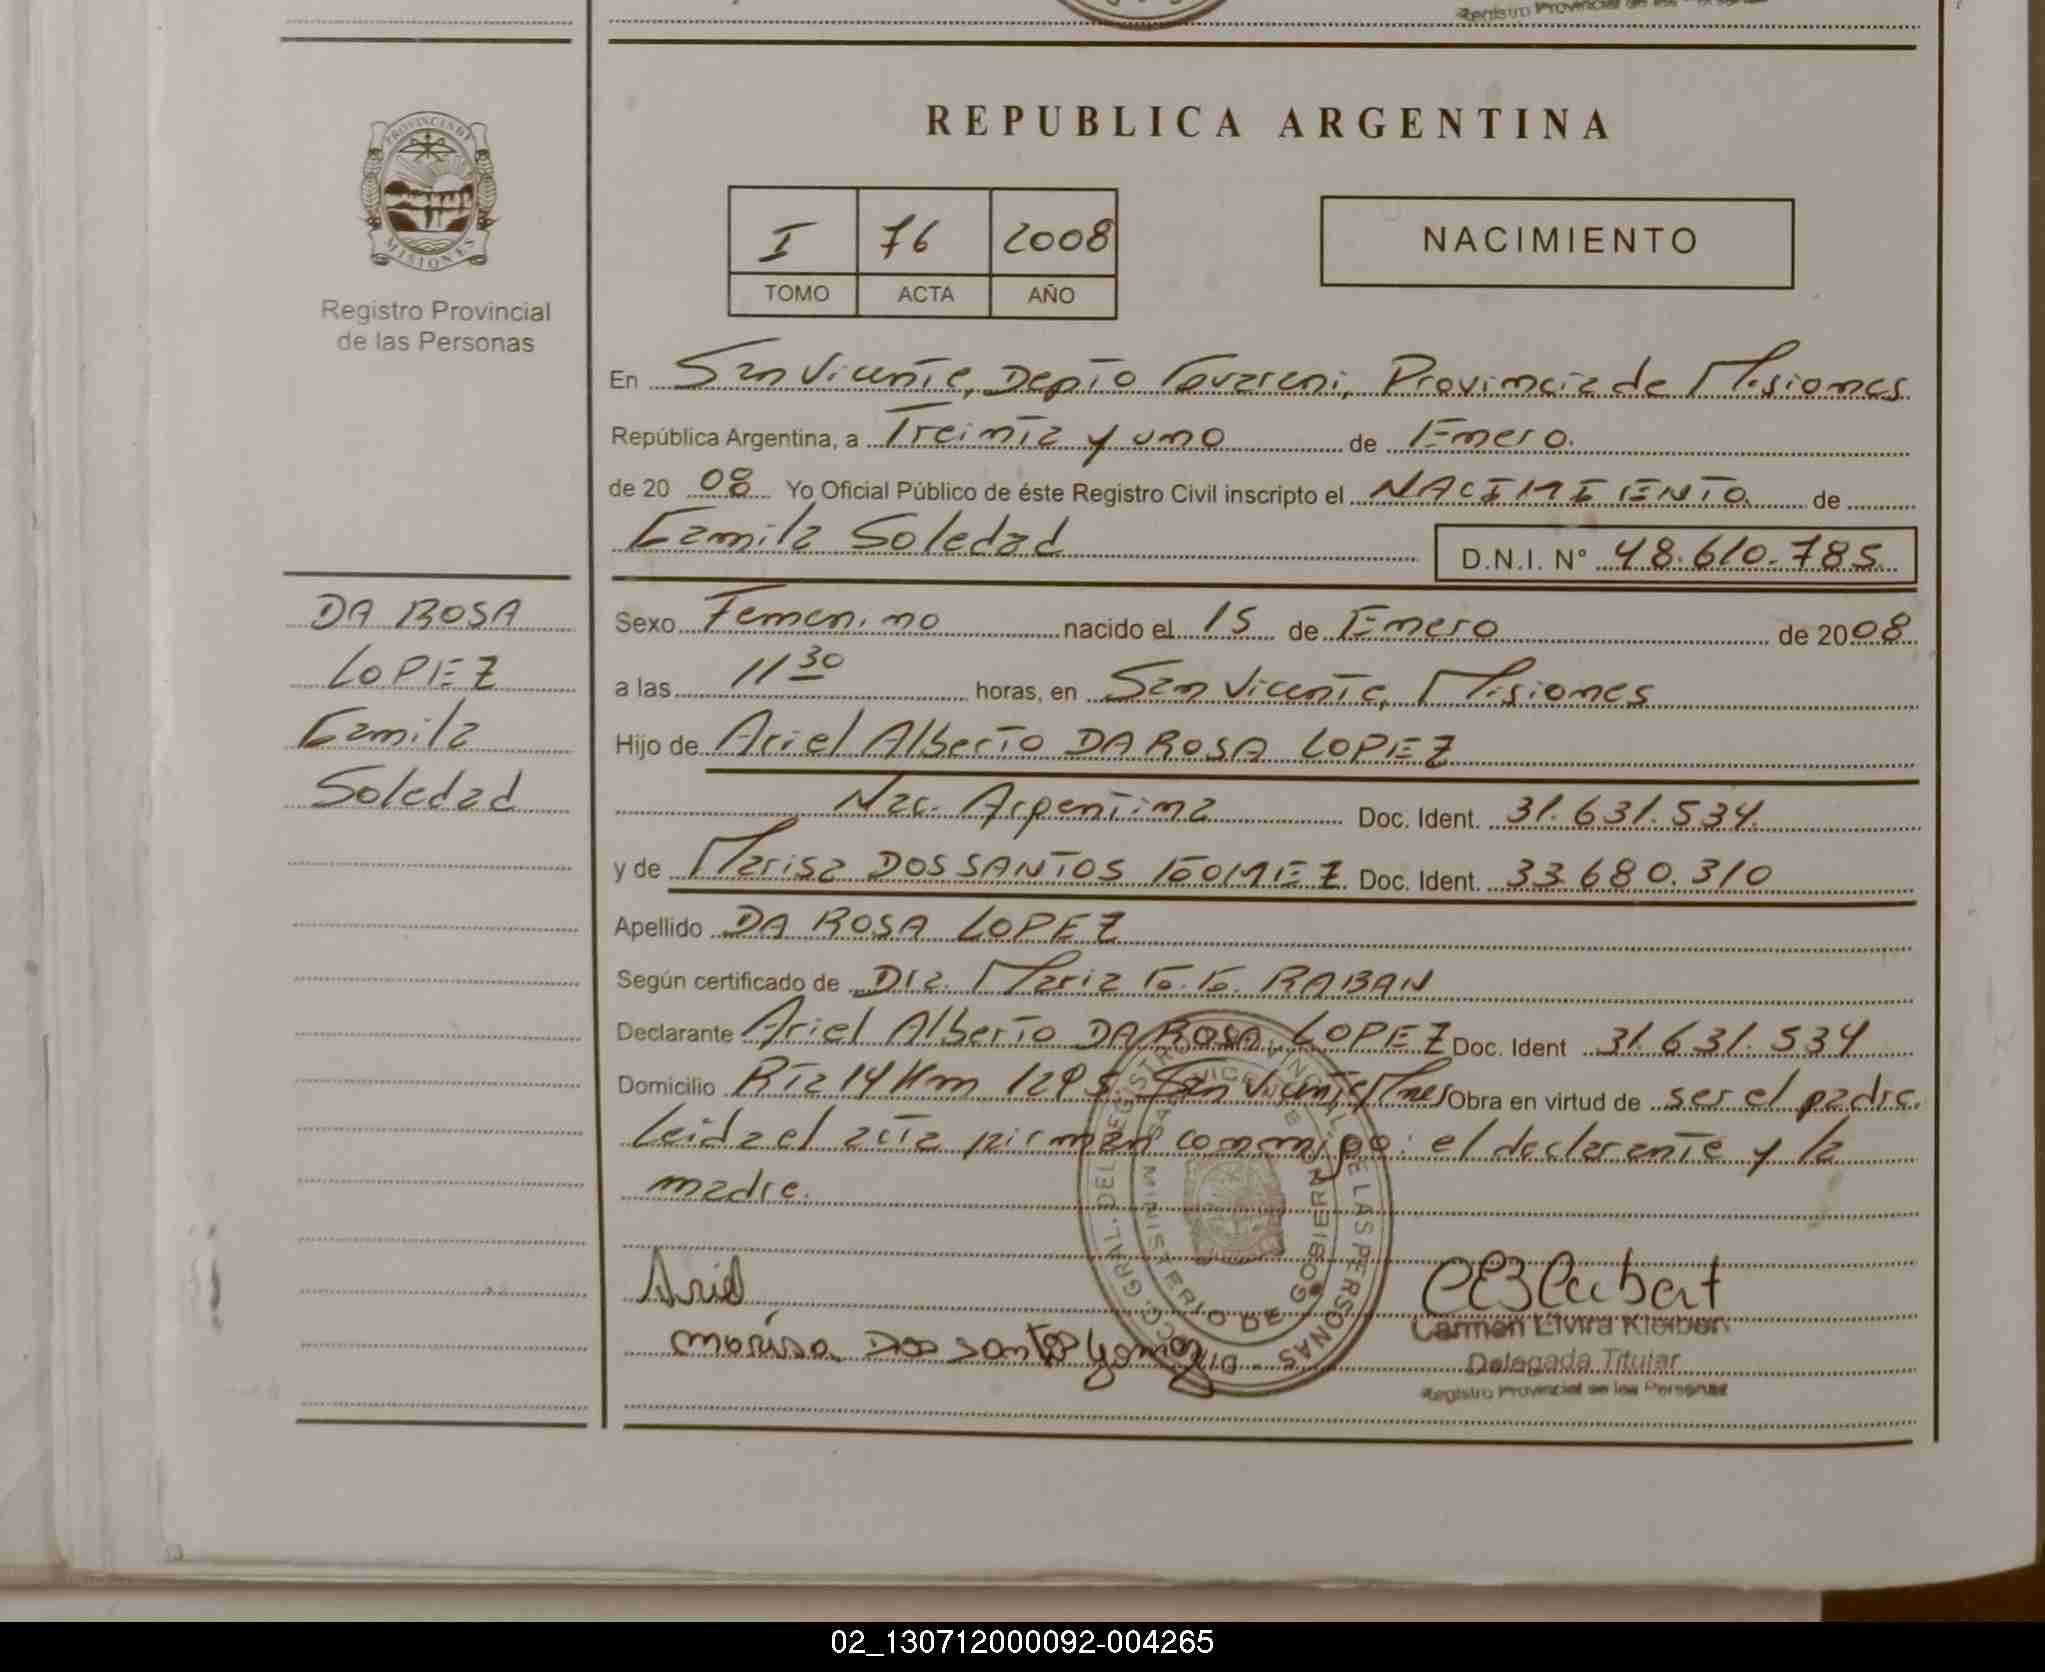 Registro Provincial de las Personas
REPUBLICA ARGENTINA
PROVINCIA DE
MISIONES
Registro Provincial
de las Personas
I 76 2008
TOMO ACTA AÑO
NACIMIENTO
En San Vicente, Depto Guarani, Provincia de Misiones
República Argentina, a Treinta y uno de Enero.
de 2008 Yo Oficial Público de éste Registro Civil inscripto el NACIMIENTO de
Camila Soledad D.N.I. N° 48.610.785
DA ROSA
LOPEZ
Camila
Soledad
Sexo Femenino nacido el 15 de Enero de 2008
a las 11 30 horas, en San Vicente, Misiones
Hijo de Ariel Alberto DA ROSA LOPEZ
Nac. Argentina Doc. Ident. 31.631.534.
y de Marisa DOS SANTOS GOMEZ Doc. Ident. 33.680.310
Apellido DA ROSA LOPEZ
Según certificado de Dra. Maria G. G. RABAN
Declarante Ariel Alberto DA ROSA LOPEZ Doc. Ident 31.631.534
Domicilio Rta 14 Km 1295 San Vicente Mnes Obra en virtud de ser el padre.
Leida el acta firman conmigo: el declarante y la
madre.
Ariel
marisa Dos santos gomez
DCC. GRAL. DEL REGISTRO PROVINCIAL DE LAS PERSONAS
MINISTERIO DE GOBIERNO
SAN VICENTE
Carmen Elvira Kleibert
Delegada Titular
Registro Provincial de las Personas
02_130712000092-004265